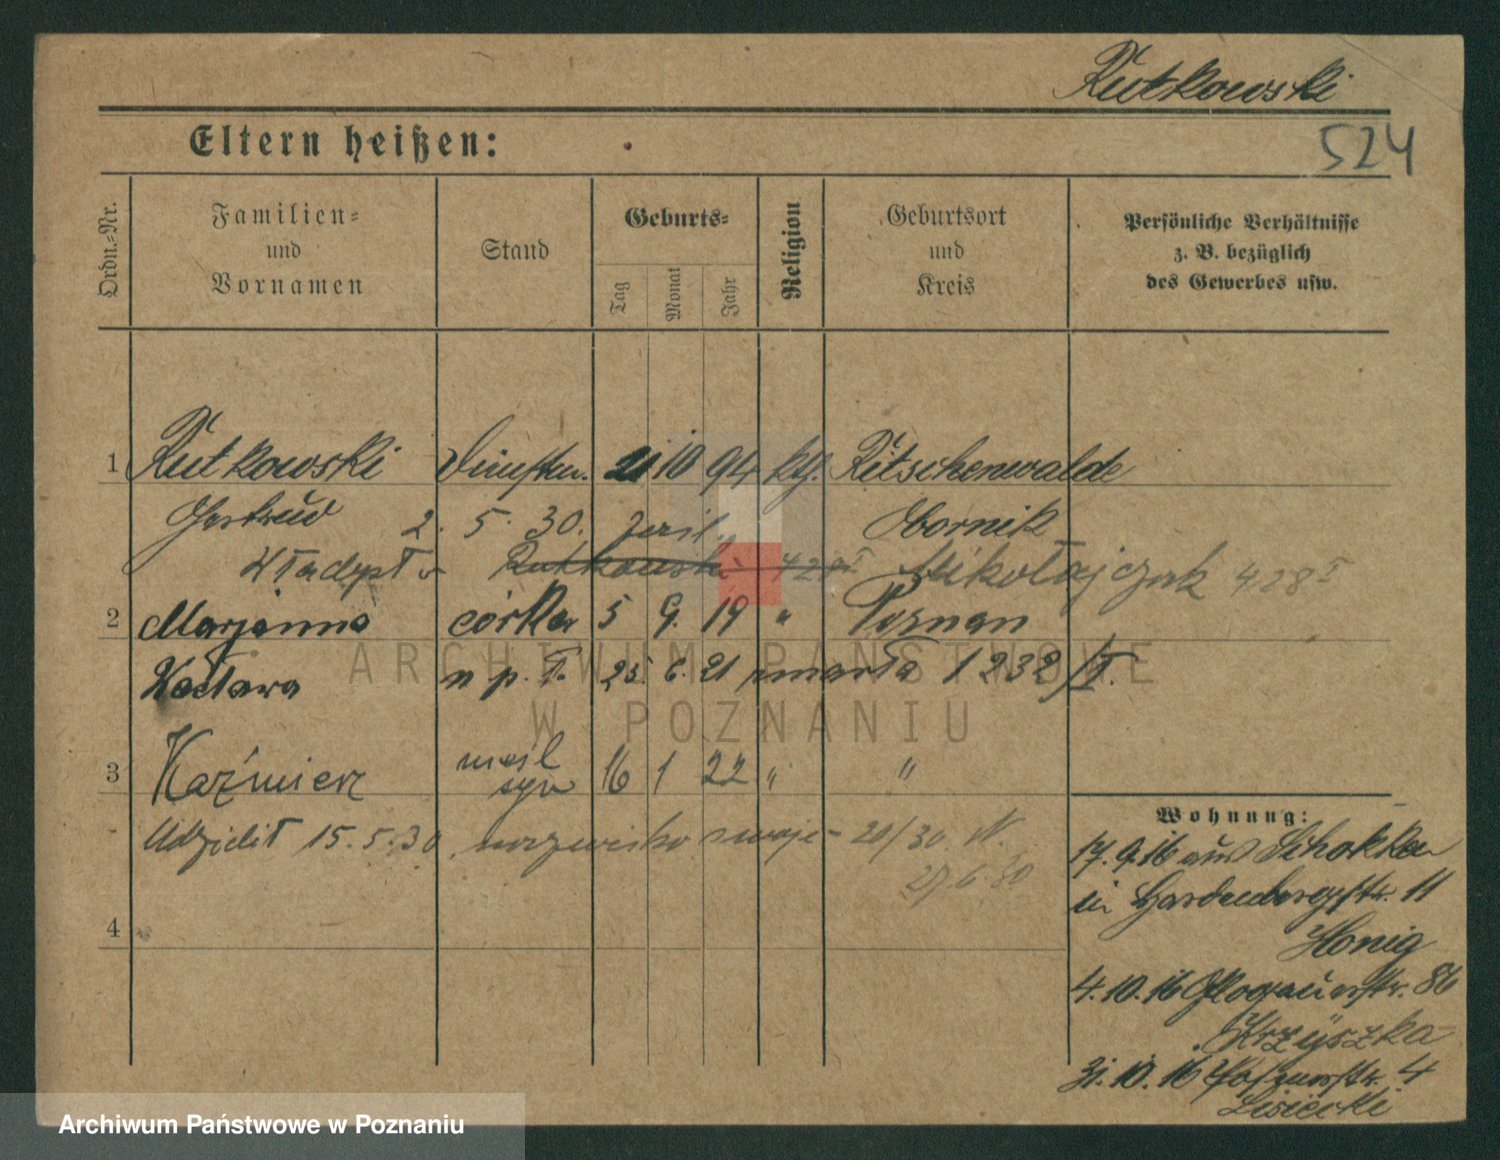 Rutkowski
524
Eltern heißen:
Ordn.-Nr.
Familien-
und
Vornamen
Stand
Geburts-
Tag
Monat
Jahr
Religion
Geburtsort
und
Kreis
Persönliche Verhältnisse
z. B. bezüglich
des Gewerbes usw.
1 Rutkowski 21 10 94 kth. Ritschenwalde
Gertrud 2. 5. 30. Obornik
Rutkowski Mikołajczak 428 I
2 Marjanna córka 5 9. 19 " Poznan
Wacława n. p. T. 25 6. 21 marła 1232/I.
3 Kaźmierz syn 16 1 22 " "
Udzielił 15.5.30 nazwisko swoje - 20/30 N.
27.6.30
4
Wohnung:
17.9.16 aus Schokken
in Hardenbergstr. 11
Honig
4.10.16 Glogauerstr. 86
Krzyszka
31.10.16 4
Lisiecki
ARCHIWUM PAŃSTWOWE
W POZNANIU
Archiwum Państwowe w Poznaniu